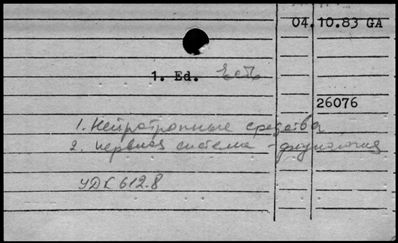 04.10.83 GA
1. Ed. есть
26076
1. Нейротропные средства
2. нервная система - физиология
УДК 612.8